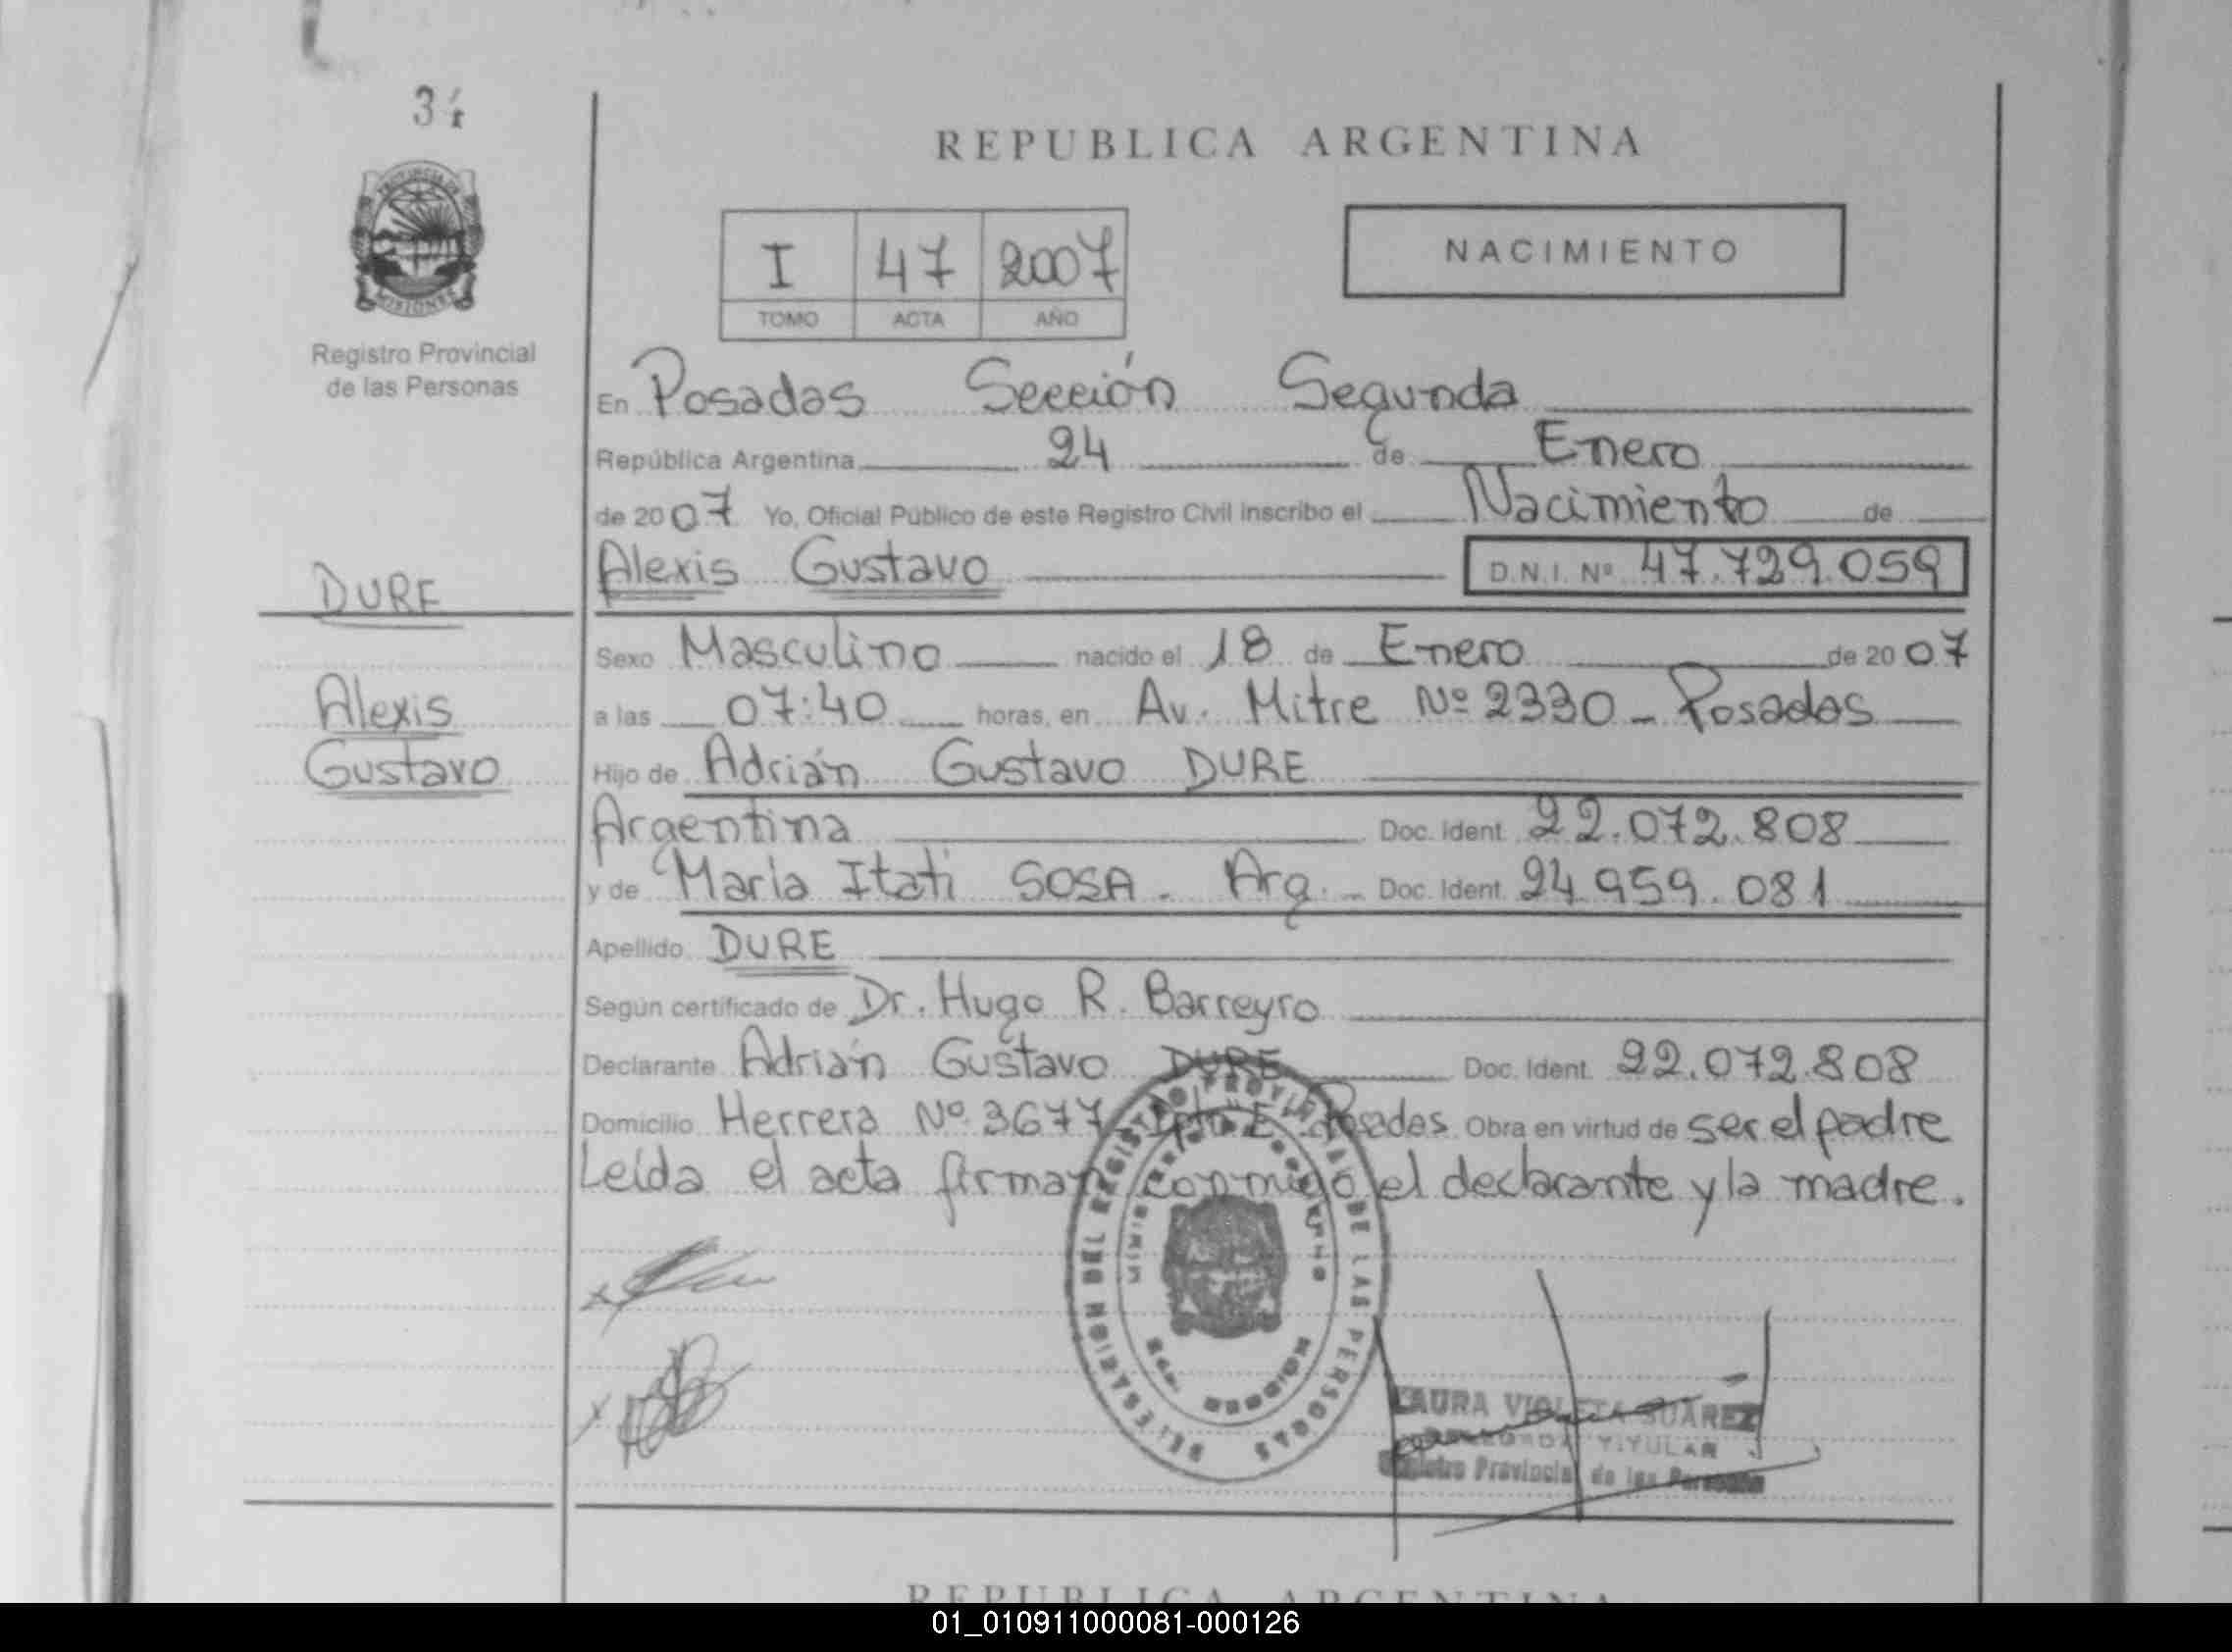 34
REPUBLICA ARGENTINA
PROVINCIA DE
MISIONES
Registro Provincial
de las Personas
I 47 2007
TOMO ACTA AÑO
NACIMIENTO
En Posadas Sección Segunda
República Argentina 24 de Enero
de 2007 Yo, Oficial Público de este Registro Civil inscribo el Nacimiento de
Alexis Gustavo D.N.I. Nº 47.729.059
DURE
Sexo Masculino nacido el 18 de Enero de 2007
Alexis
a las 07:40 horas, en Av. Mitre Nº 2330 - Posadas
Gustavo
Hijo de Adrián Gustavo DURE
Argentina Doc. Ident. 22.072.808
y de María Itatí SOSA - Arg. - Doc. Ident. 24.959.081
Apellido DURE
Según certificado de Dr. Hugo R. Barreyro
Declarante Adrián Gustavo DURE Doc. Ident. 22.072.808
Domicilio Herrera Nº 3677 Dpto "E" Posadas Obra en virtud de ser el padre
Leída el acta firman conmigo el declarante y la madre.
DEL REGISTRO PROVINCIAL DE LAS PERSONAS
MINISTERIO DE GOBIERNO
MISIONES
LAURA VIOLETA SUÁREZ
TITULAR
Registro Provincial de las Personas
REPUBLICA ARGENTINA
01_010911000081-000126